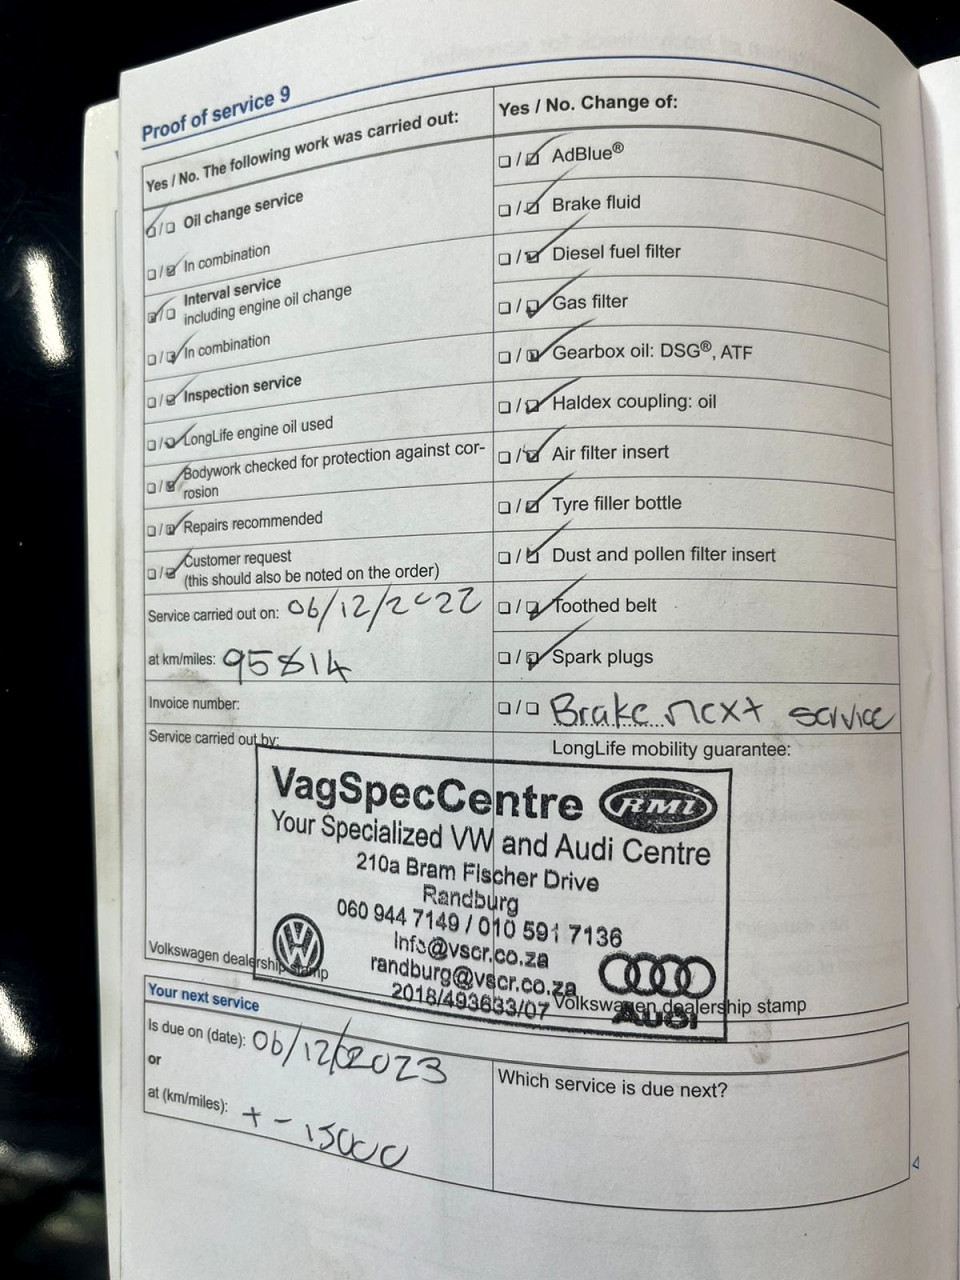 Proof of service 9
Yes / No. The following work was carried out:
Oil change service
In combination
Interval service
including engine oil change
In combination
Inspection service
LongLife engine oil used
Bodywork checked for protection against cor-
rosion
Repairs recommended
Customer request
(this should also be noted on the order)
Service carried out on: 06/12/2022
at km/miles: 95814
Invoice number:
Service carried out by:
Yes / No. Change of:
AdBlue®
Brake fluid
Diesel fuel filter
Gas filter
Gearbox oil: DSG®, ATF
Haldex coupling: oil
Air filter insert
Tyre filler bottle
Dust and pollen filter insert
Toothed belt
Spark plugs
Brake next service
LongLife mobility guarantee:
VagSpecCentre RMI
Your Specialized VW and Audi Centre
210a Bram Fischer Drive
Randburg
060 944 7149 / 010 591 7136
Info@vscr.co.za
randburg@vscr.co.za
2018/493633/07
Audi
Volkswagen dealership stamp
Volkswagen dealership stamp
Your next service
Is due on (date): 06/12/2023
or
at (km/miles): + - 15000
Which service is due next?